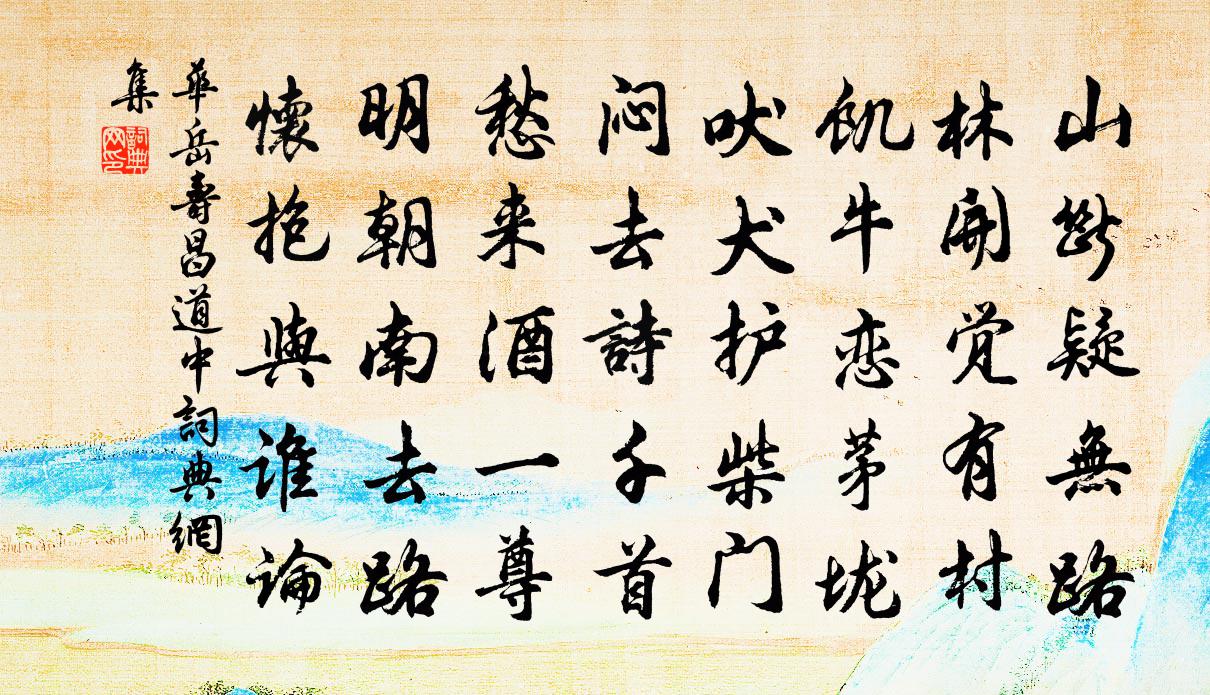 山断疑無路
林開觉有村
飢牛恋茅垅
吠犬护柴门
闷去詩千首
愁来酒一尊
明朝南去路
懷抱與谁論
華岳壽昌道中詞典網
集
詞典網印